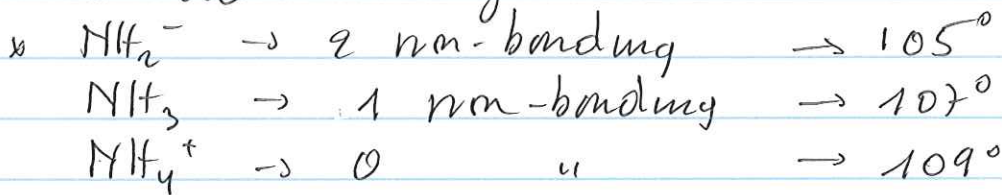 * NH₂⁻ → 2 non-bonding → 105°
NH₃ → 1 non-bonding → 107°
NH₄⁺ → 0 " → 109°